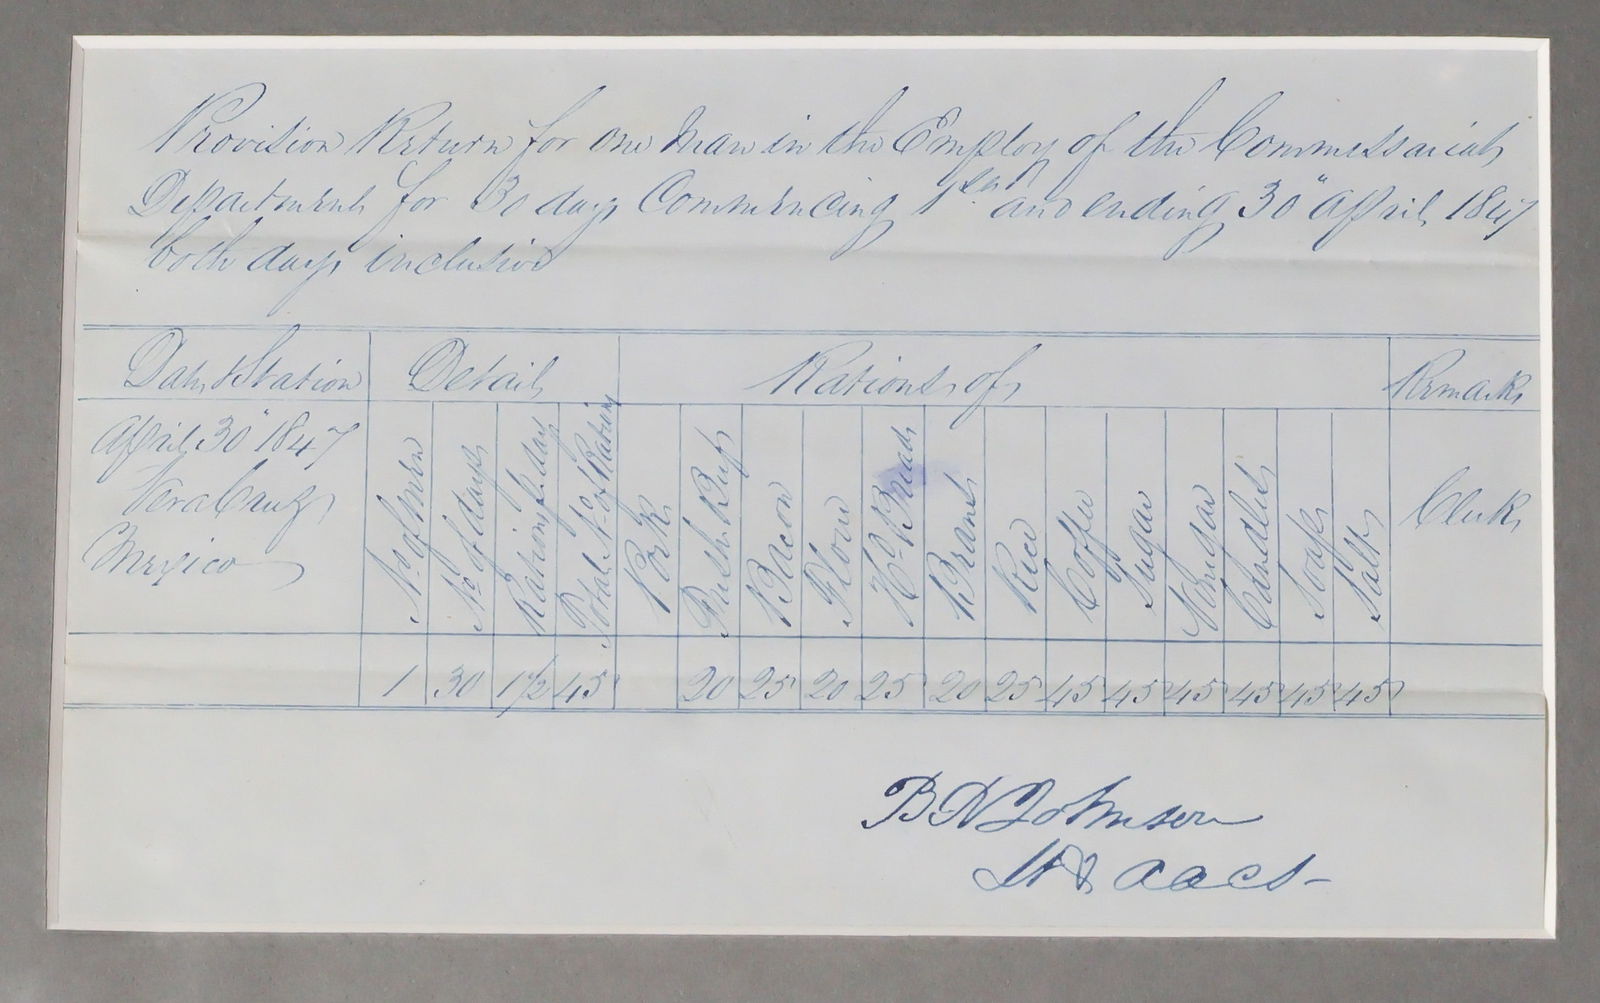 Provision Return for one Man in the Employ of the Commissariat
Department for 30 days Commencing 1st and ending 30" April 1847
both days inclusive
Date & Station Detail Rations of Remarks
April 30" 1847
Vera Cruz
Mexico
No of Men
No of days
Rations pr day
Total No of Rations
Pork
Fresh Beef
Bacon
Flour
Hd Bread
Beans
Rice
Coffee
Sugar
Vinegar
Candles
Soap
Salt
Clerk
1 30 1 1/2 45 20 25 20 25 20 25 45 45 45 45 45 45
B R Johnson
Lt & aacs